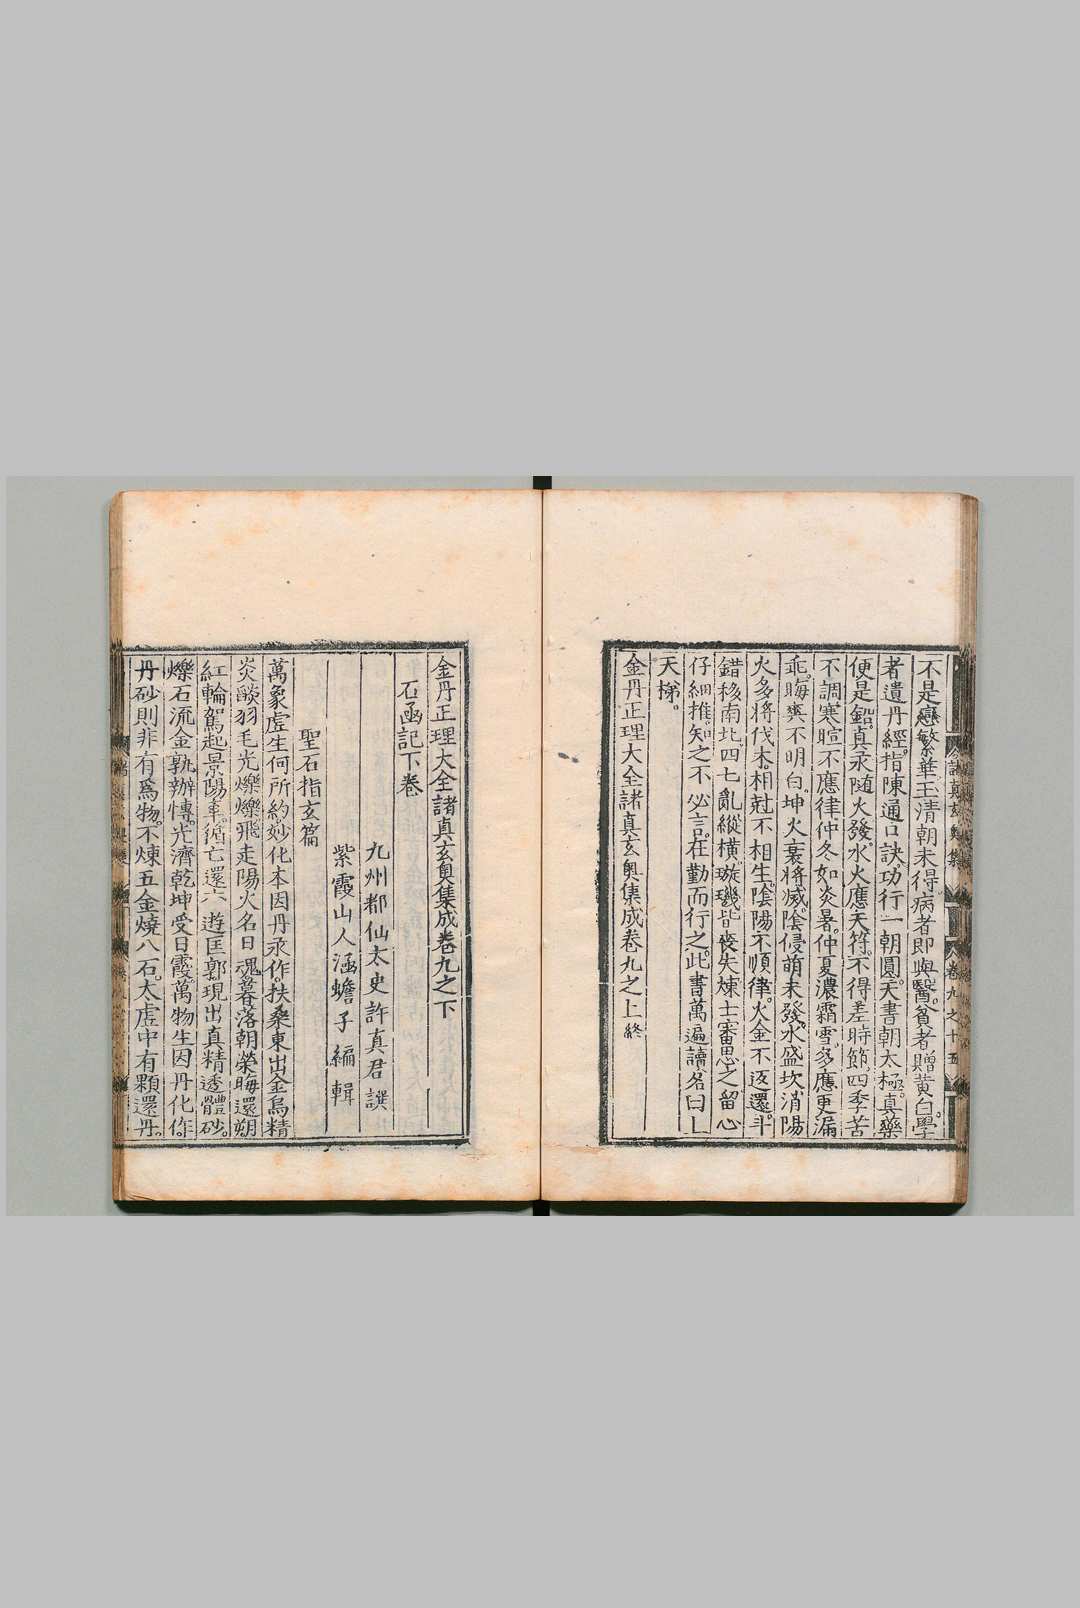 不是戀繁華玉清朝未得病者即與醫貧者贈黃白學
者遺丹經指陳通口訣功行一朝圓天書朝太極真藥
便是鉛真汞随火發水火應天符不得差時節四季苦
不調寒暄不應律仲冬如炎暑仲夏濃霜雪多應更漏
乖晦爽不明白坤火衰將滅陰侵萌未發水盛坎消陽
火多將伐木相尅不相生陰陽不順律火金不返還斗
錯移南北四七亂縱橫璇璣皆喪失煉士審思之留心
仔細推知之不必言在勤而行之此書萬遍讀名曰上
天梯
金丹正理大全諸真玄奧集成卷九之上終
金丹正理大全諸真玄奧集成卷九之下
石函記下卷
九州都仙太史許真君譔
紫霞山人涵蟾子編輯
聖石指玄篇
萬象虛生何所約妙化本因丹汞作扶桑東出金烏精
炎燄羽毛光爍爍飛走陽火名日魂暮落朝榮晦還朔
紅輪駕起景陽車循亡還六遊匡郭現出真精透體砂
爍石流金孰辦慱光濟乾坤受日霞萬物生因丹化作
丹砂則非有爲物不煉五金燒八石太虛中有顆還丹
諸真玄奧集 卷九之十五